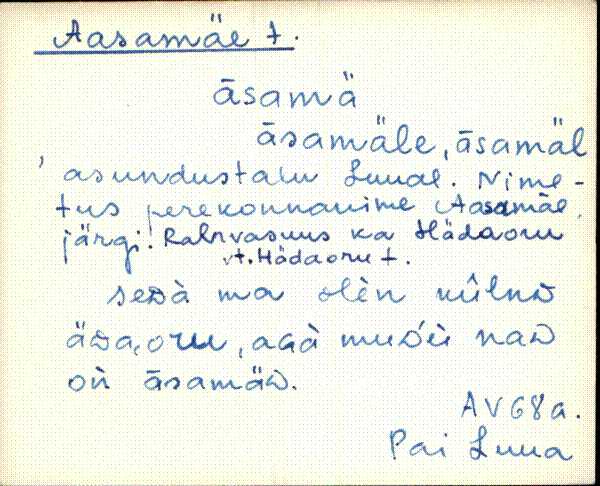 Aasamäe t.
āsamä
āsamäle, āsamäl
asundustalu Luual. Nime-
tus perekonnanime Aasamäe
järgi. Rahvasuus ka Hädaoru
vt. Hädaoru t.
ma olèn
äᴅa,oru, aGà naᴅ
āsamäᴅ.
AV68a.
Pai Luua